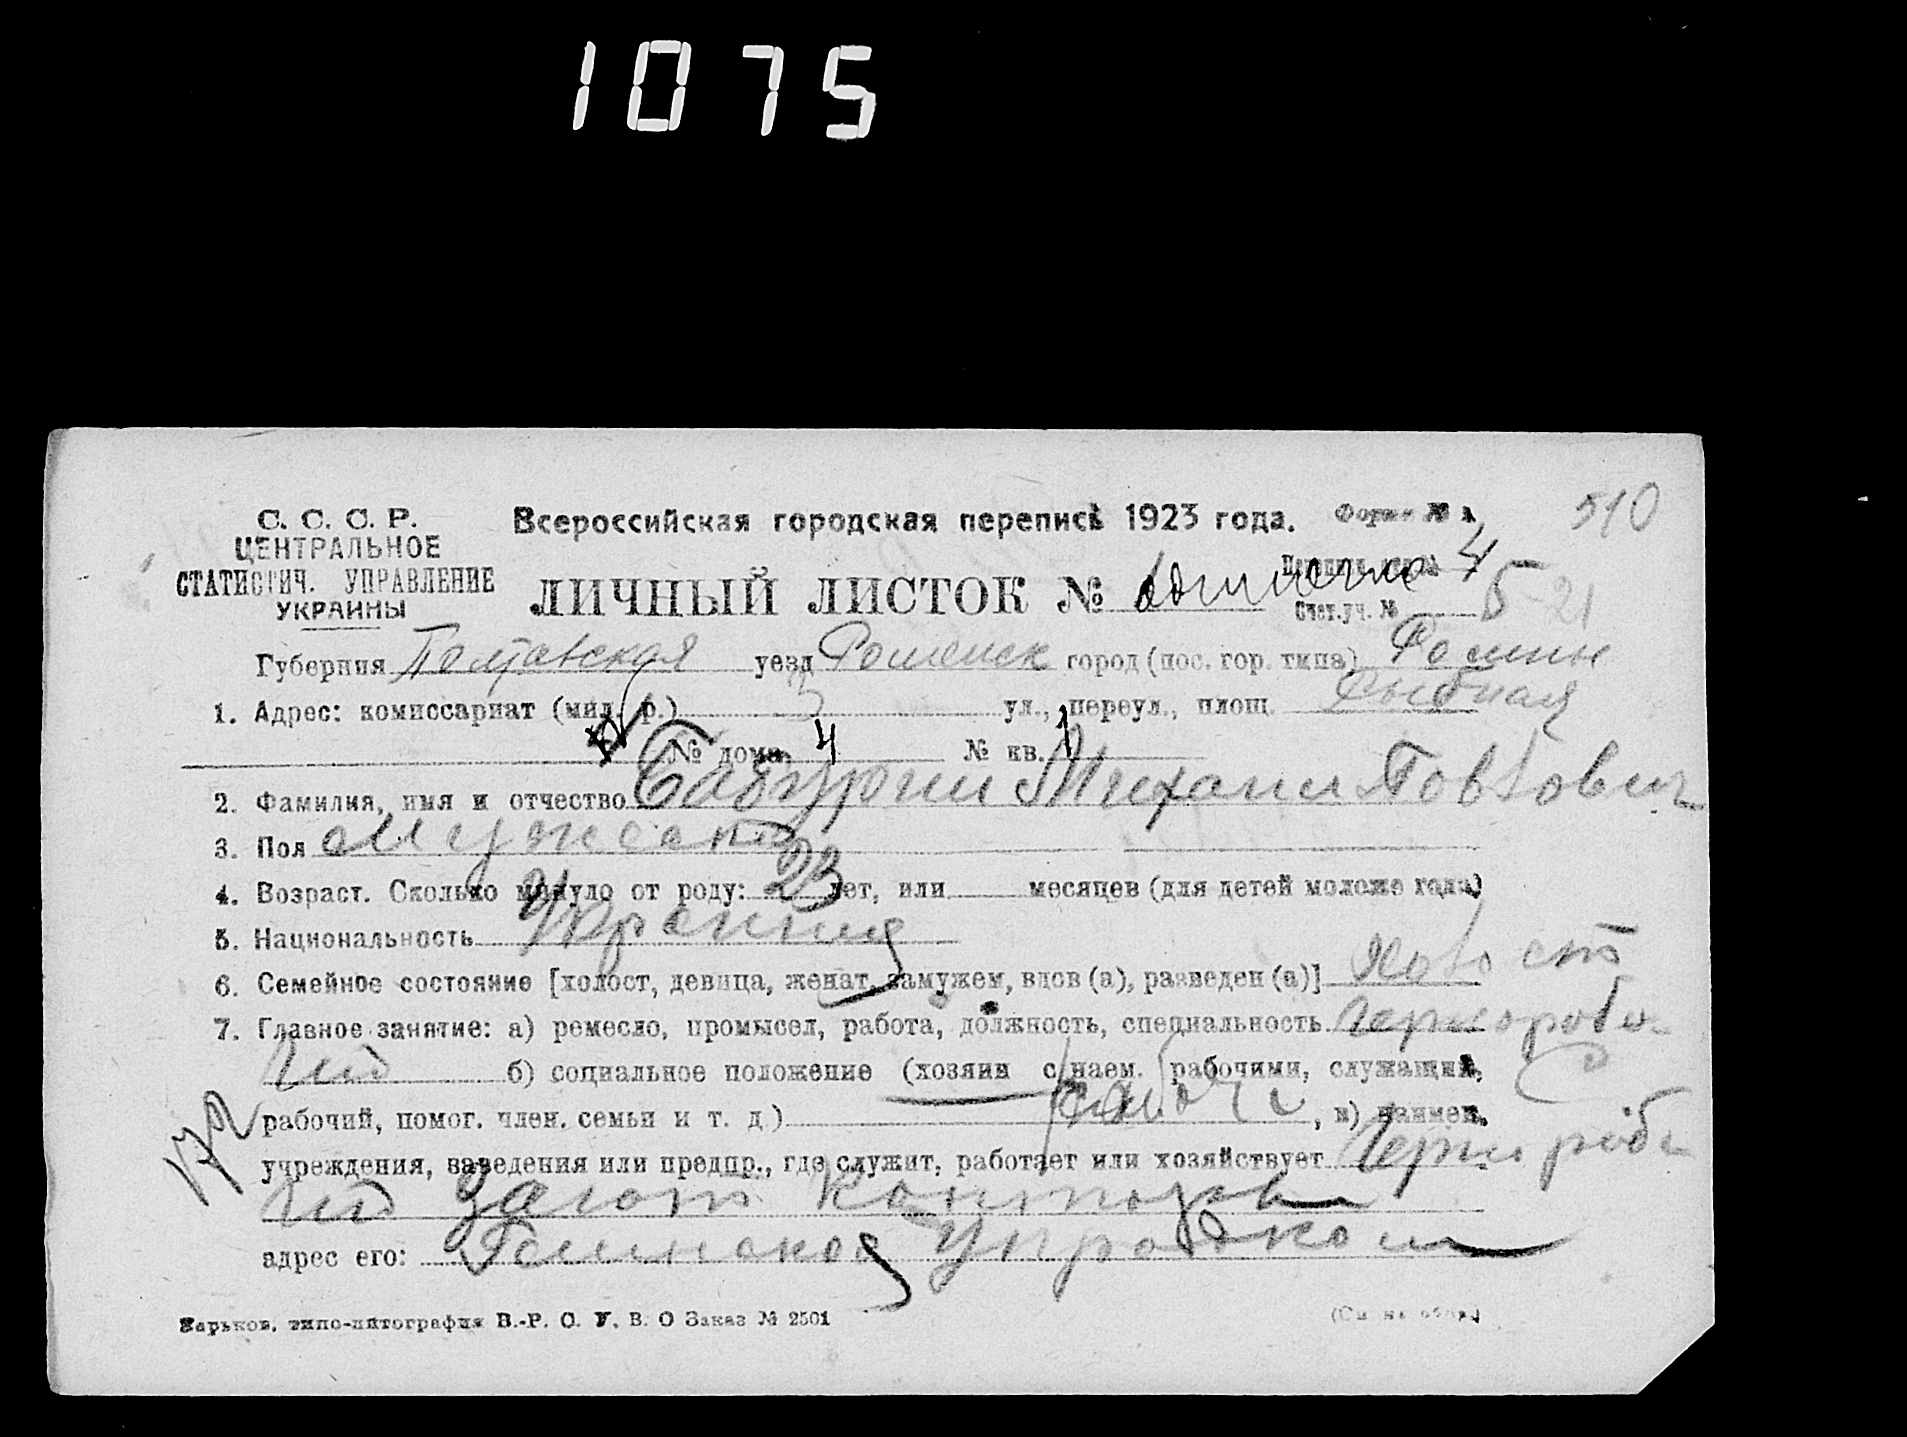 1075
С. С. С. Р.
ЦЕНТРАЛЬНОЕ
СТАТИСТИЧ. УПРАВЛЕНИЕ
УКРАИНЫ
Всероссийская городская перепись 1923 года.
Форма № 1.
510
ЛИЧНЫЙ ЛИСТОК №
4
Счет.уч. № 5-21
Губерния Полтавская уезд Роменск город (пос. гор. типа) Ромны
1. Адрес: комиссариат (мил. р.) 3 ул., переул., площ. Рыбная
№ дома 4 № кв. 1
2. Фамилия, имя и отчество Бабурин Михаил
3. Пол Мужской
4. Возраст. Сколько минуло от роду: 23 лет, или месяцев (для детей моложе года)
5. Национальность
6. Семейное состояние [холост, девица, женат, замужем, вдов (а), разведен (а)] Холост
7. Главное занятие: а) ремесло, промысел, работа, должность, специальность Чернорабо-
чий б) социальное положение (хозяин с наем. рабочими, служащий,
рабочий, помог. член. семьи и т. д.) , в) наимен.
учреждения, заведения или предпр., где служит, работает или хозяйствует Чернорабо
чий Загот Контора
адрес его:
Харьков, типо-литография В.-Р. С. У. В. О Заказ № 2501
(См на обор.)